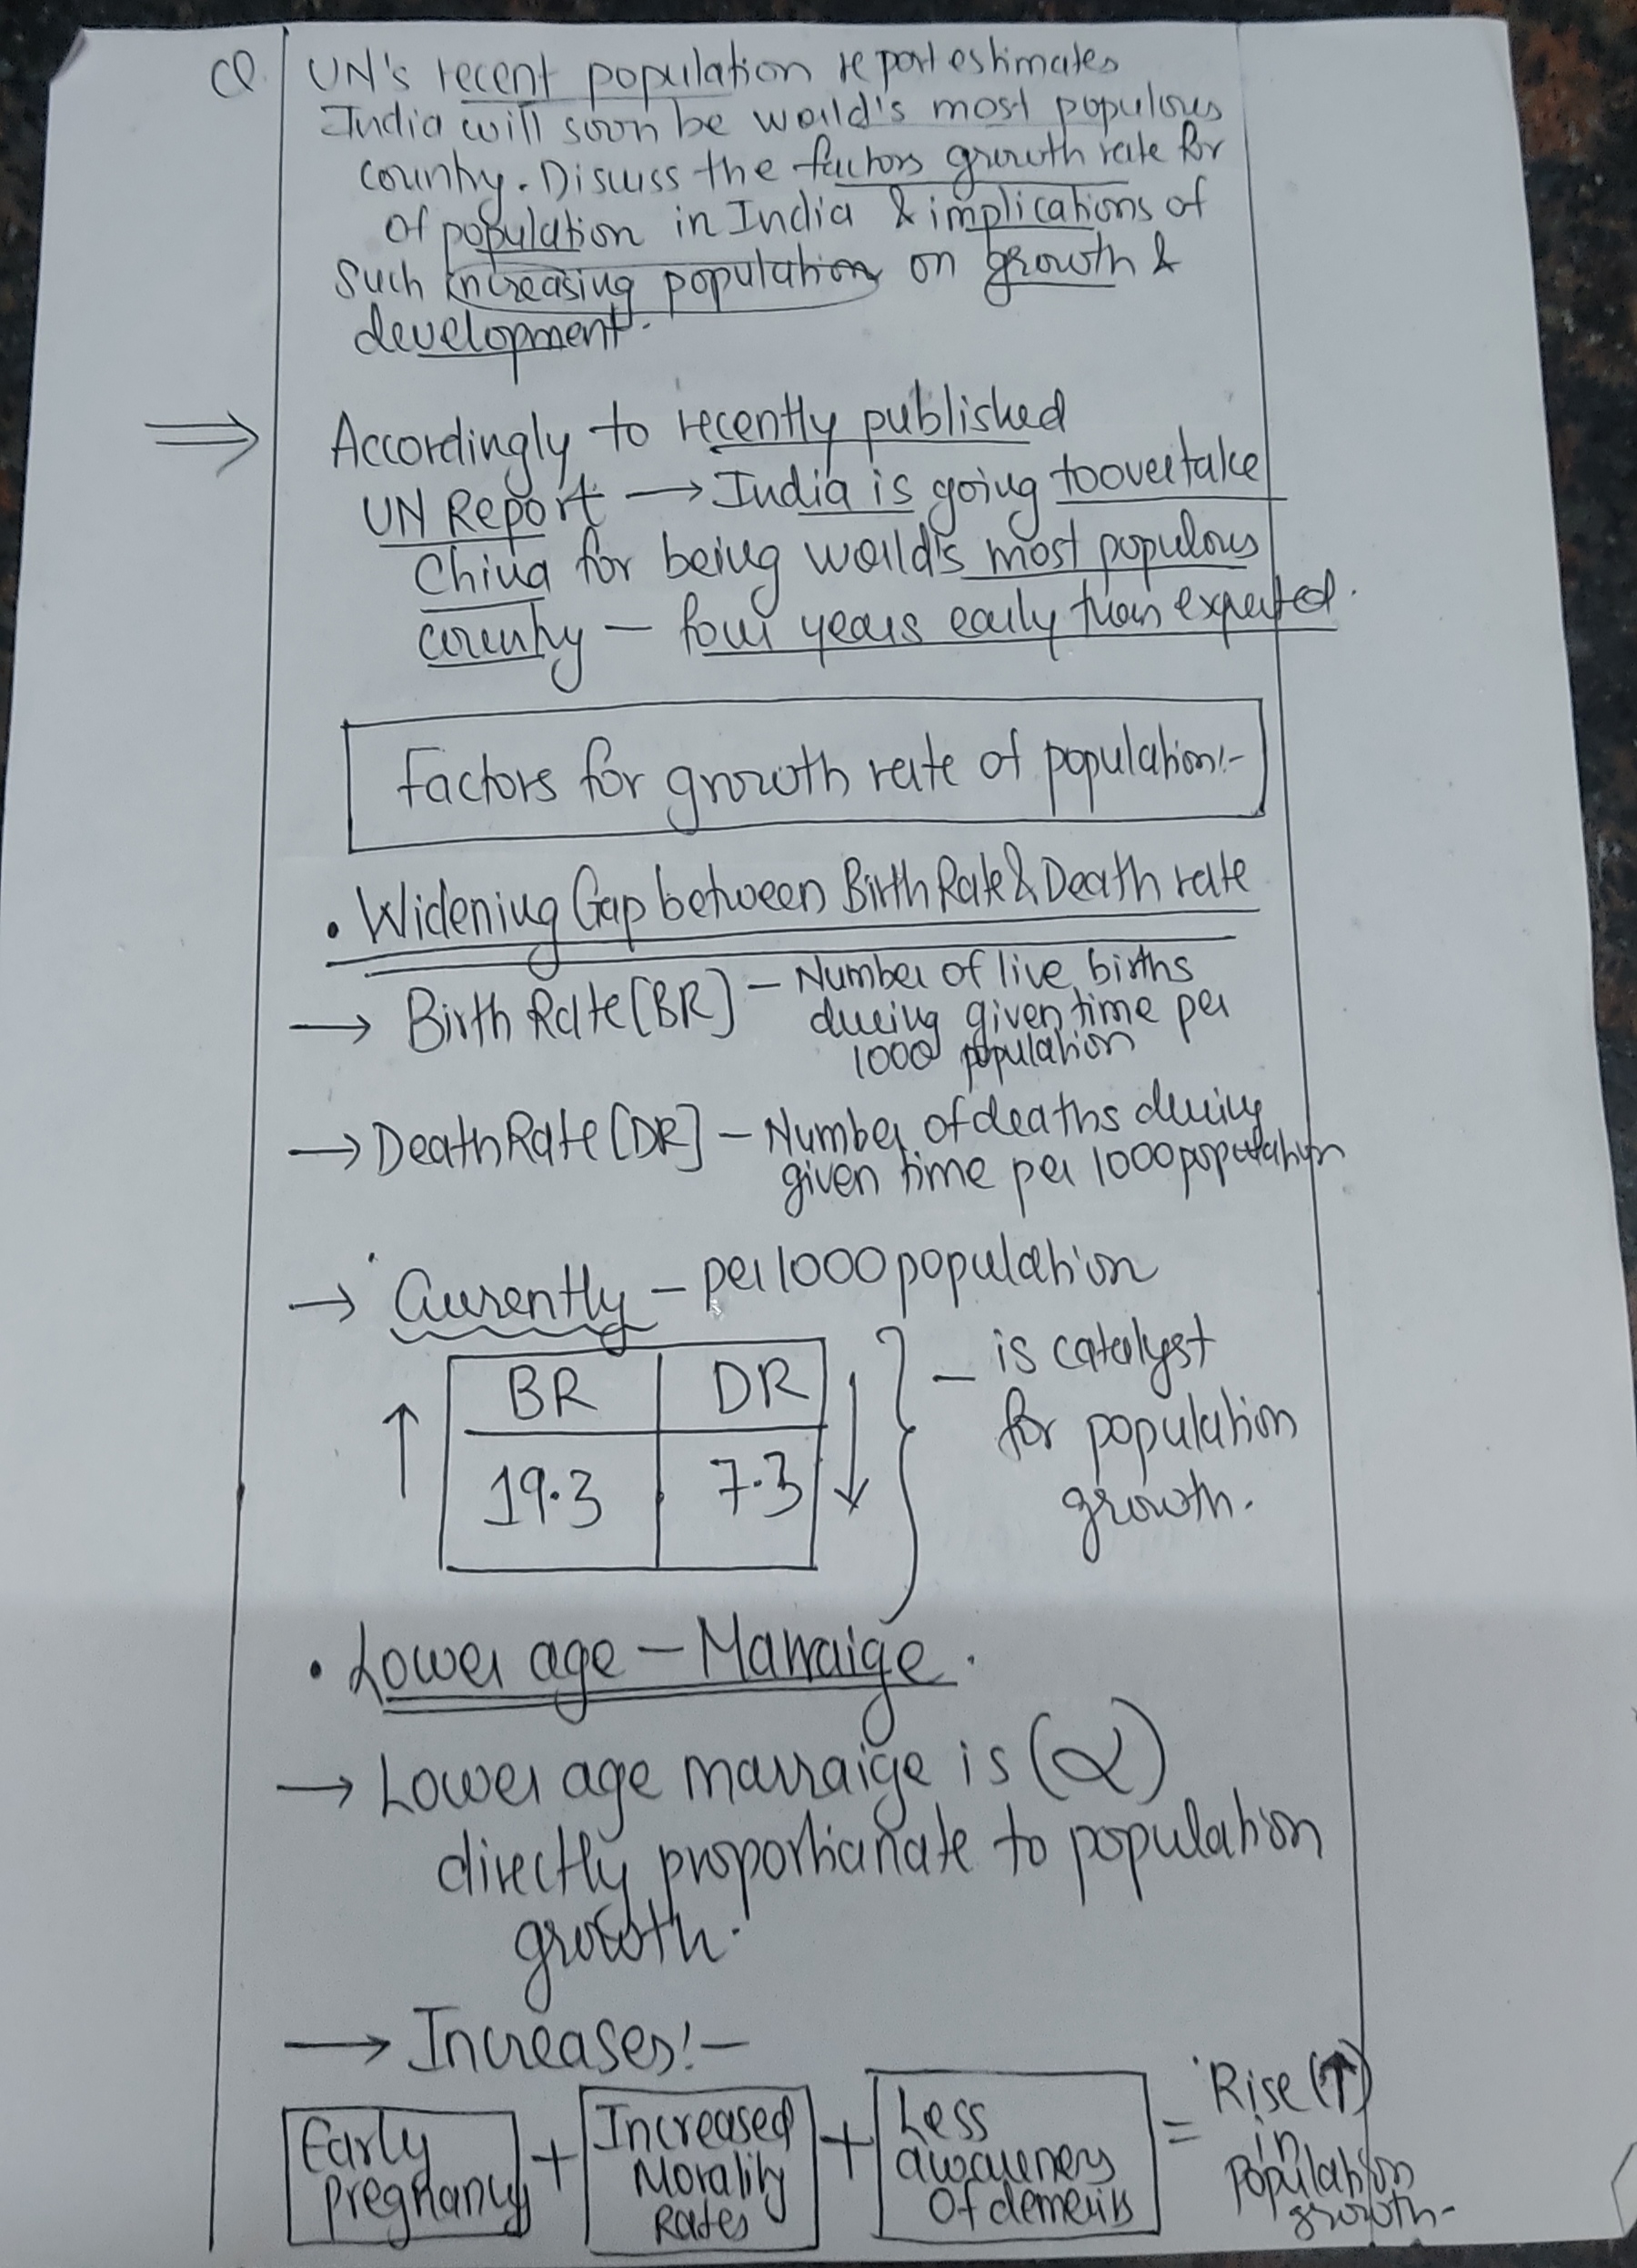 Q UN's recent population report estimates
India will soon be world's most populous
country. Discuss the factors growth rate for
of population in India & implications of
such increasing population on growth &
development.
⇒ Accordingly to recently published
UN Report → India is going to overtake
China for being world's most populous
country – four years early than expected.
Factors for growth rate of population:-
• Widening Gap between Birth Rate & Death rate
→ Birth Rate [BR] – Number of live births
during given time per
1000 population
→ Death Rate [DR] – Number of deaths during
given time per 1000 population
→ Currently – per 1000 population
↑ BR | DR ↓ } – is catalyst
for population
19.3 | 7.3
growth.
• Lower age – Marraige.
→ Lower age marraige is (α)
directly proportianate to population
growth.
→ Increases:-
Early Pregnancy + Increased Morality Rates + Less awauueners Of demerits = Rise (↑) in population growth-